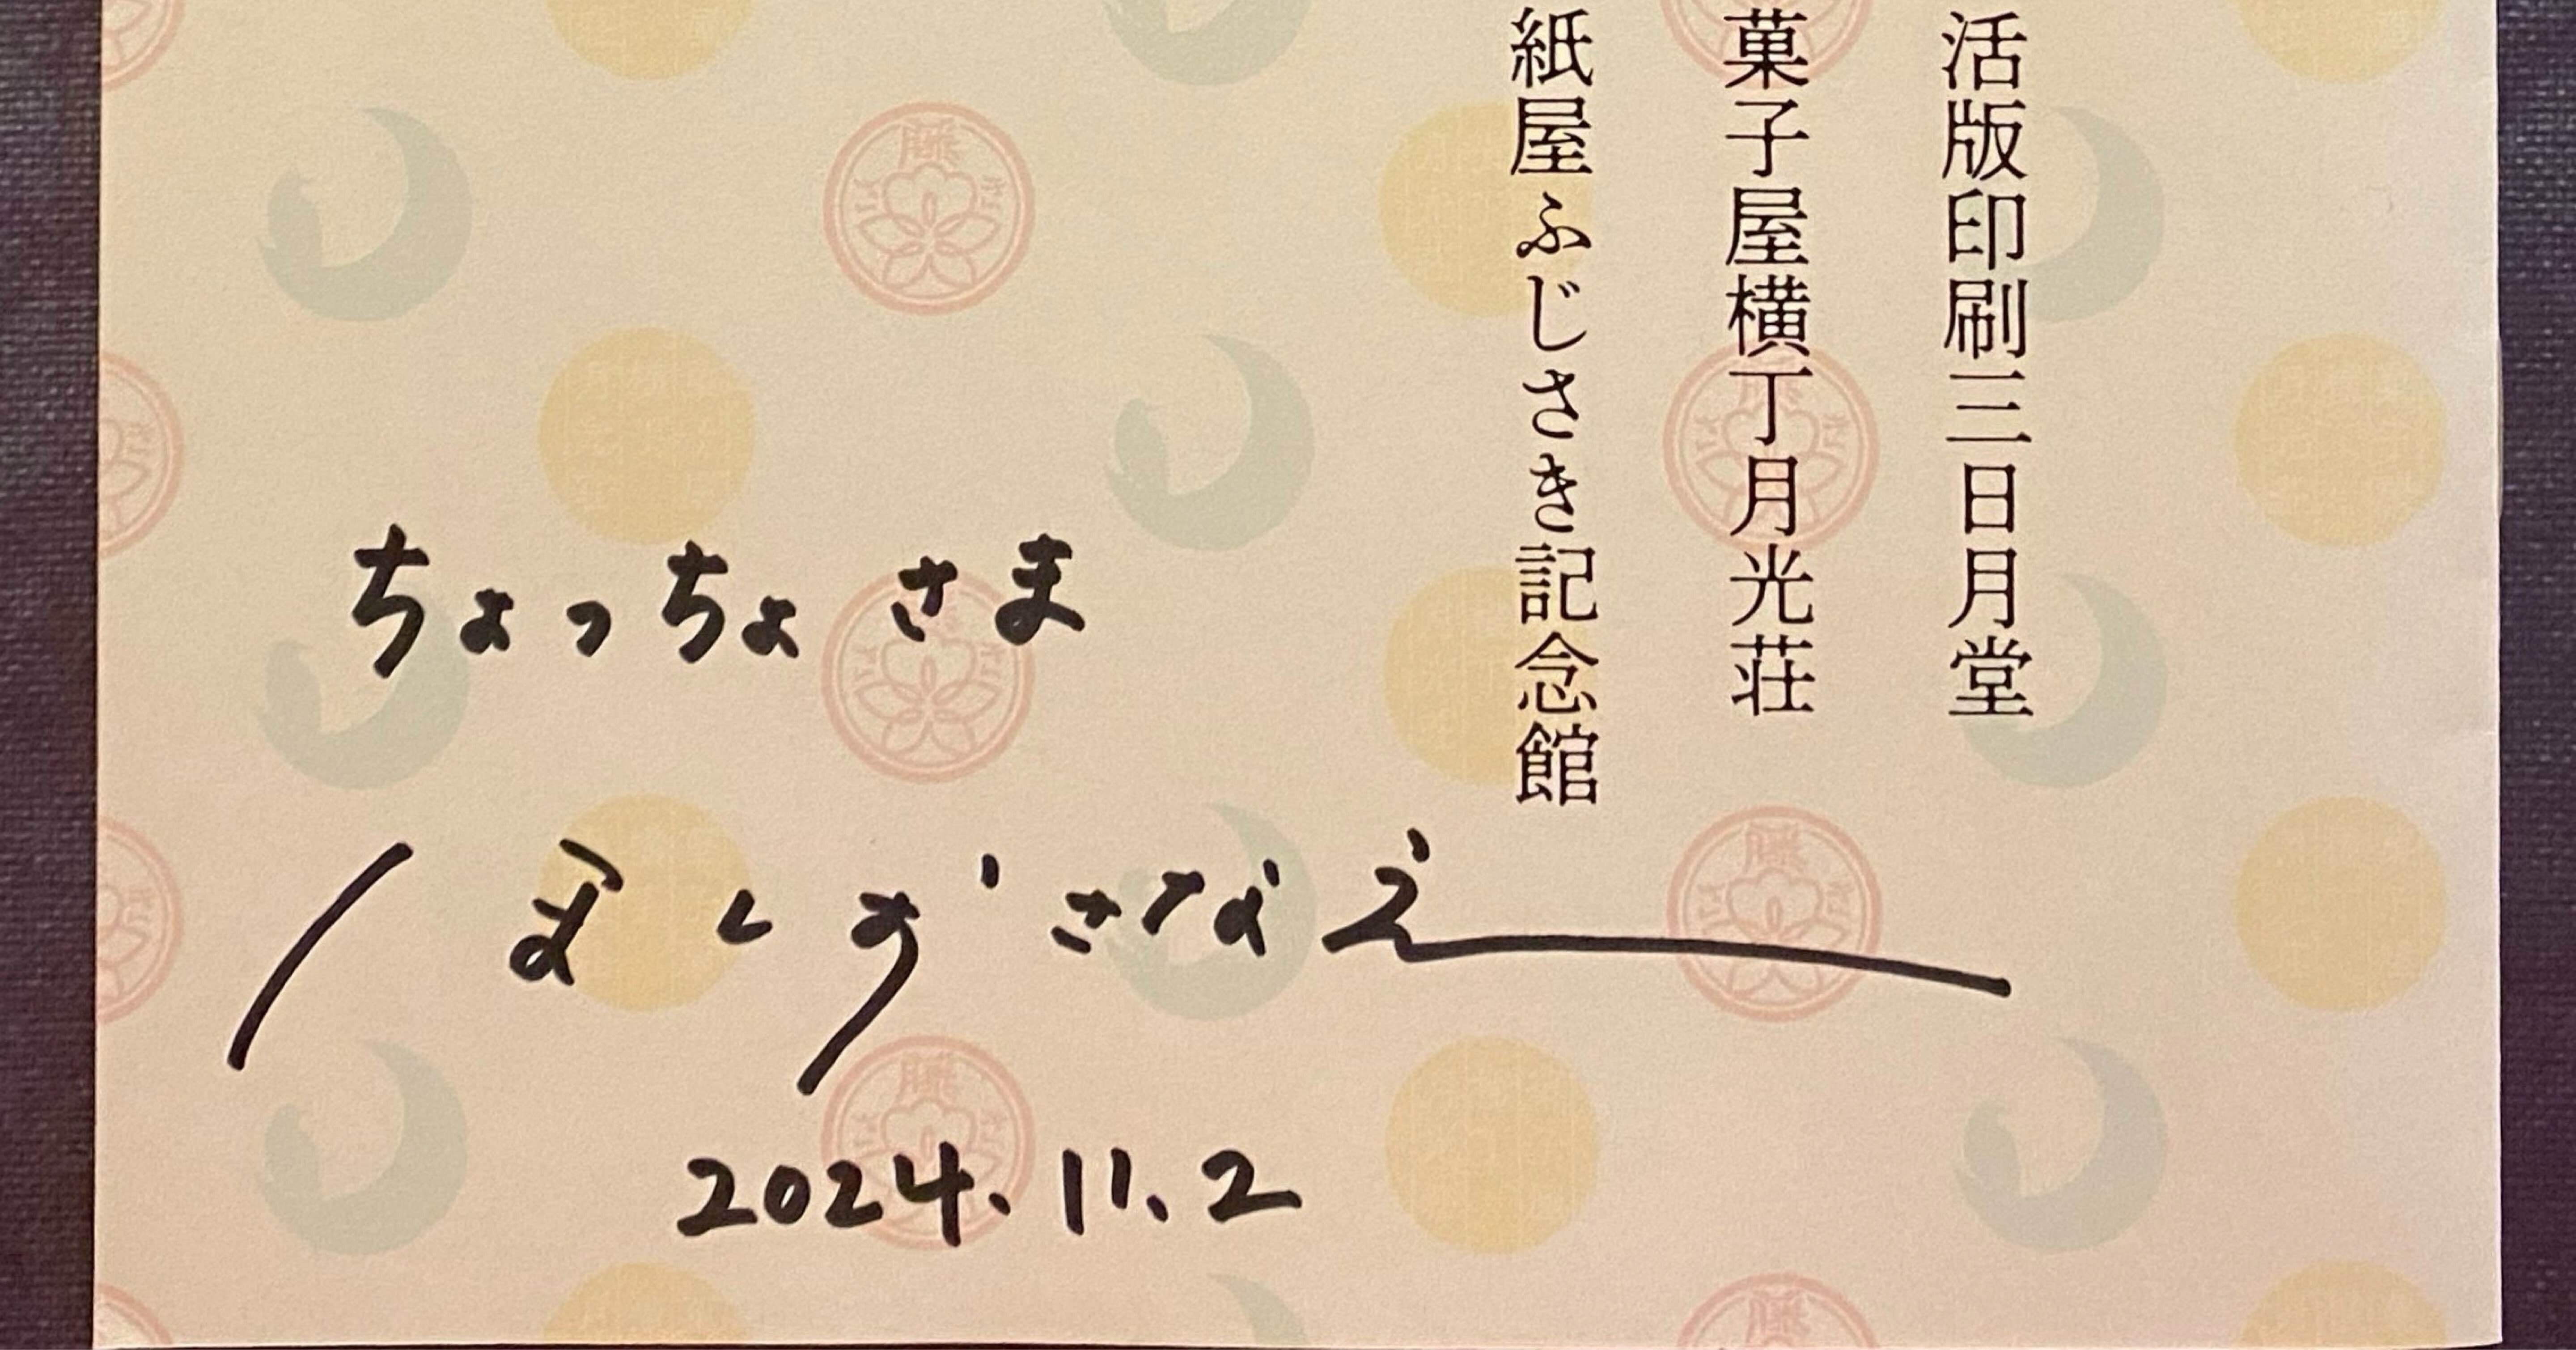 活版印刷三日月堂
菓子屋横丁月光荘
紙屋ふじさき記念館
ちょっちょさま
ほしおさなえ
2024.11.2